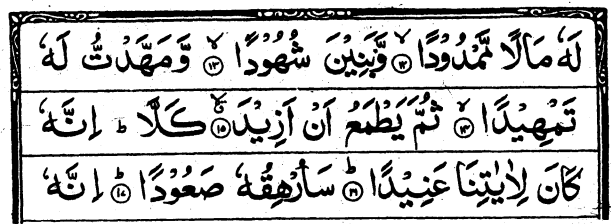 لَهٗ مَالًا مَّمْدُوْدًا ۙ﴿۱۲﴾ وَّبَنِيْنَ شُهُوْدًا ۙ﴿۱۳﴾ وَّمَهَّدْتُّ لَهٗ
تَمْهِيْدًا ۙ﴿۱۴﴾ ثُمَّ يَطْمَعُ اَنْ اَزِيْدَ ۙ﴿۱۵﴾ كَلَّا ؕ اِنَّهٗ
كَانَ لِاٰيٰتِنَا عَنِيْدًا ؕ﴿۱۶﴾ سَاُرْهِقُهٗ صَعُوْدًا ؕ﴿۱۷﴾ اِنَّهٗ